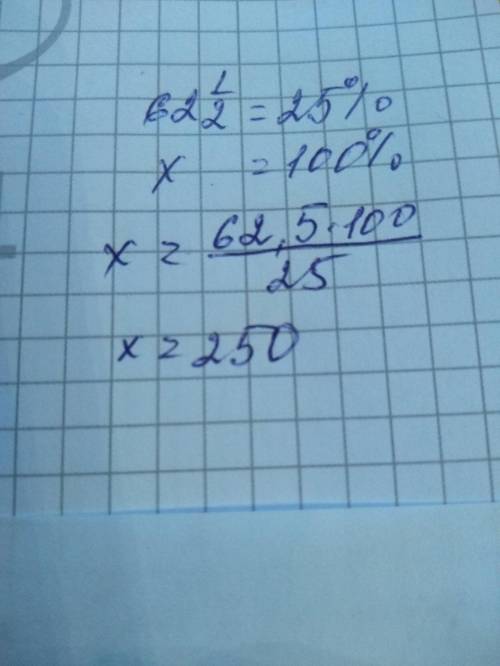 62 1/2 = 25%
x = 100%
x = 62,5·100/25
x = 250